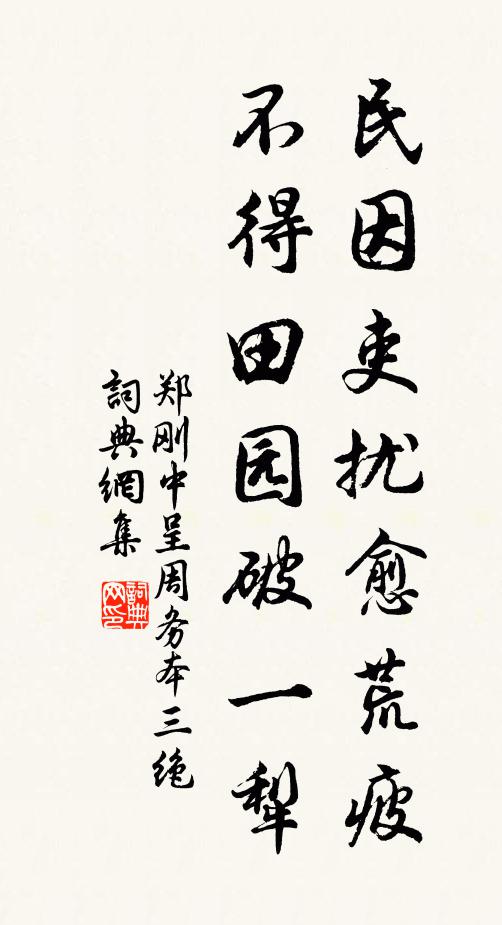 民因吏扰愈荒疲
不得田园破一犁
郑刚中呈周务本三绝
詞典網集
詞典网印